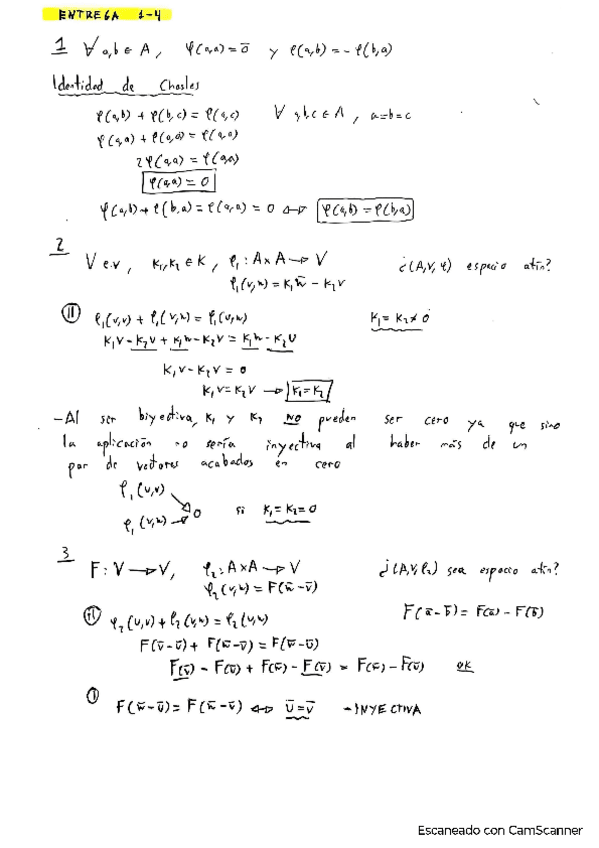 ENTREGA 1-4
1 ∀ a,b ∈ A, φ(a,a)=0̄ y φ(a,b)=-φ(b,a)
Identidad de Chasles
φ(a,b) + φ(b,c) = φ(a,c) ∀ a,b,c ∈ A, a=b=c
φ(a,a) + φ(a,a) = φ(a,a)
2φ(a,a) = φ(a,a)
φ(a,a) = 0
φ(a,b) + φ(b,a) = φ(a,a) = 0 ⇔ φ(a,b) = φ(b,a)
2
V e.v, K₁,K₂ ∈ K, φ₁: A×A → V ¿(A,V,φ) espacio afín?
φ₁(v,w) = K₁w̄ - K₂v
II φ₁(u,v) + φ₁(v,w) = φ₁(u,w) K₁ = K₂ ≠ 0
K₁v - K₂u + K₁w - K₂v = K₁w - K₂u
K₁v - K₂v = 0
K₁v = K₂v → K₁ = K₂
-Al ser biyectiva, K₁ y K₂ NO pueden ser cero ya que sino
la aplicación no sería inyectiva al haber más de un
par de vectores acabados en cero
φ₁(u,v)
0 si K₁ = K₂ = 0
φ₁(v,w)
3
F: V → V, φ₂: A×A → V ¿(A,V,φ₂) sea espacio afín?
φ₂(v,w) = F(w̄ - v̄)
II φ₂(u,v) + φ₂(v,w) = φ₂(u,w) F(ā - b̄) = F(ā) - F(b̄)
F(v̄-ū) + F(w̄-v̄) = F(w̄-ū)
F(v̄) - F(ū) + F(w̄) - F(v̄) = F(w̄) - F(ū) OK
I F(w̄-ū) = F(w̄-v̄) ⇔ ū = v̄ - INYECTIVA
Escaneado con CamScanner